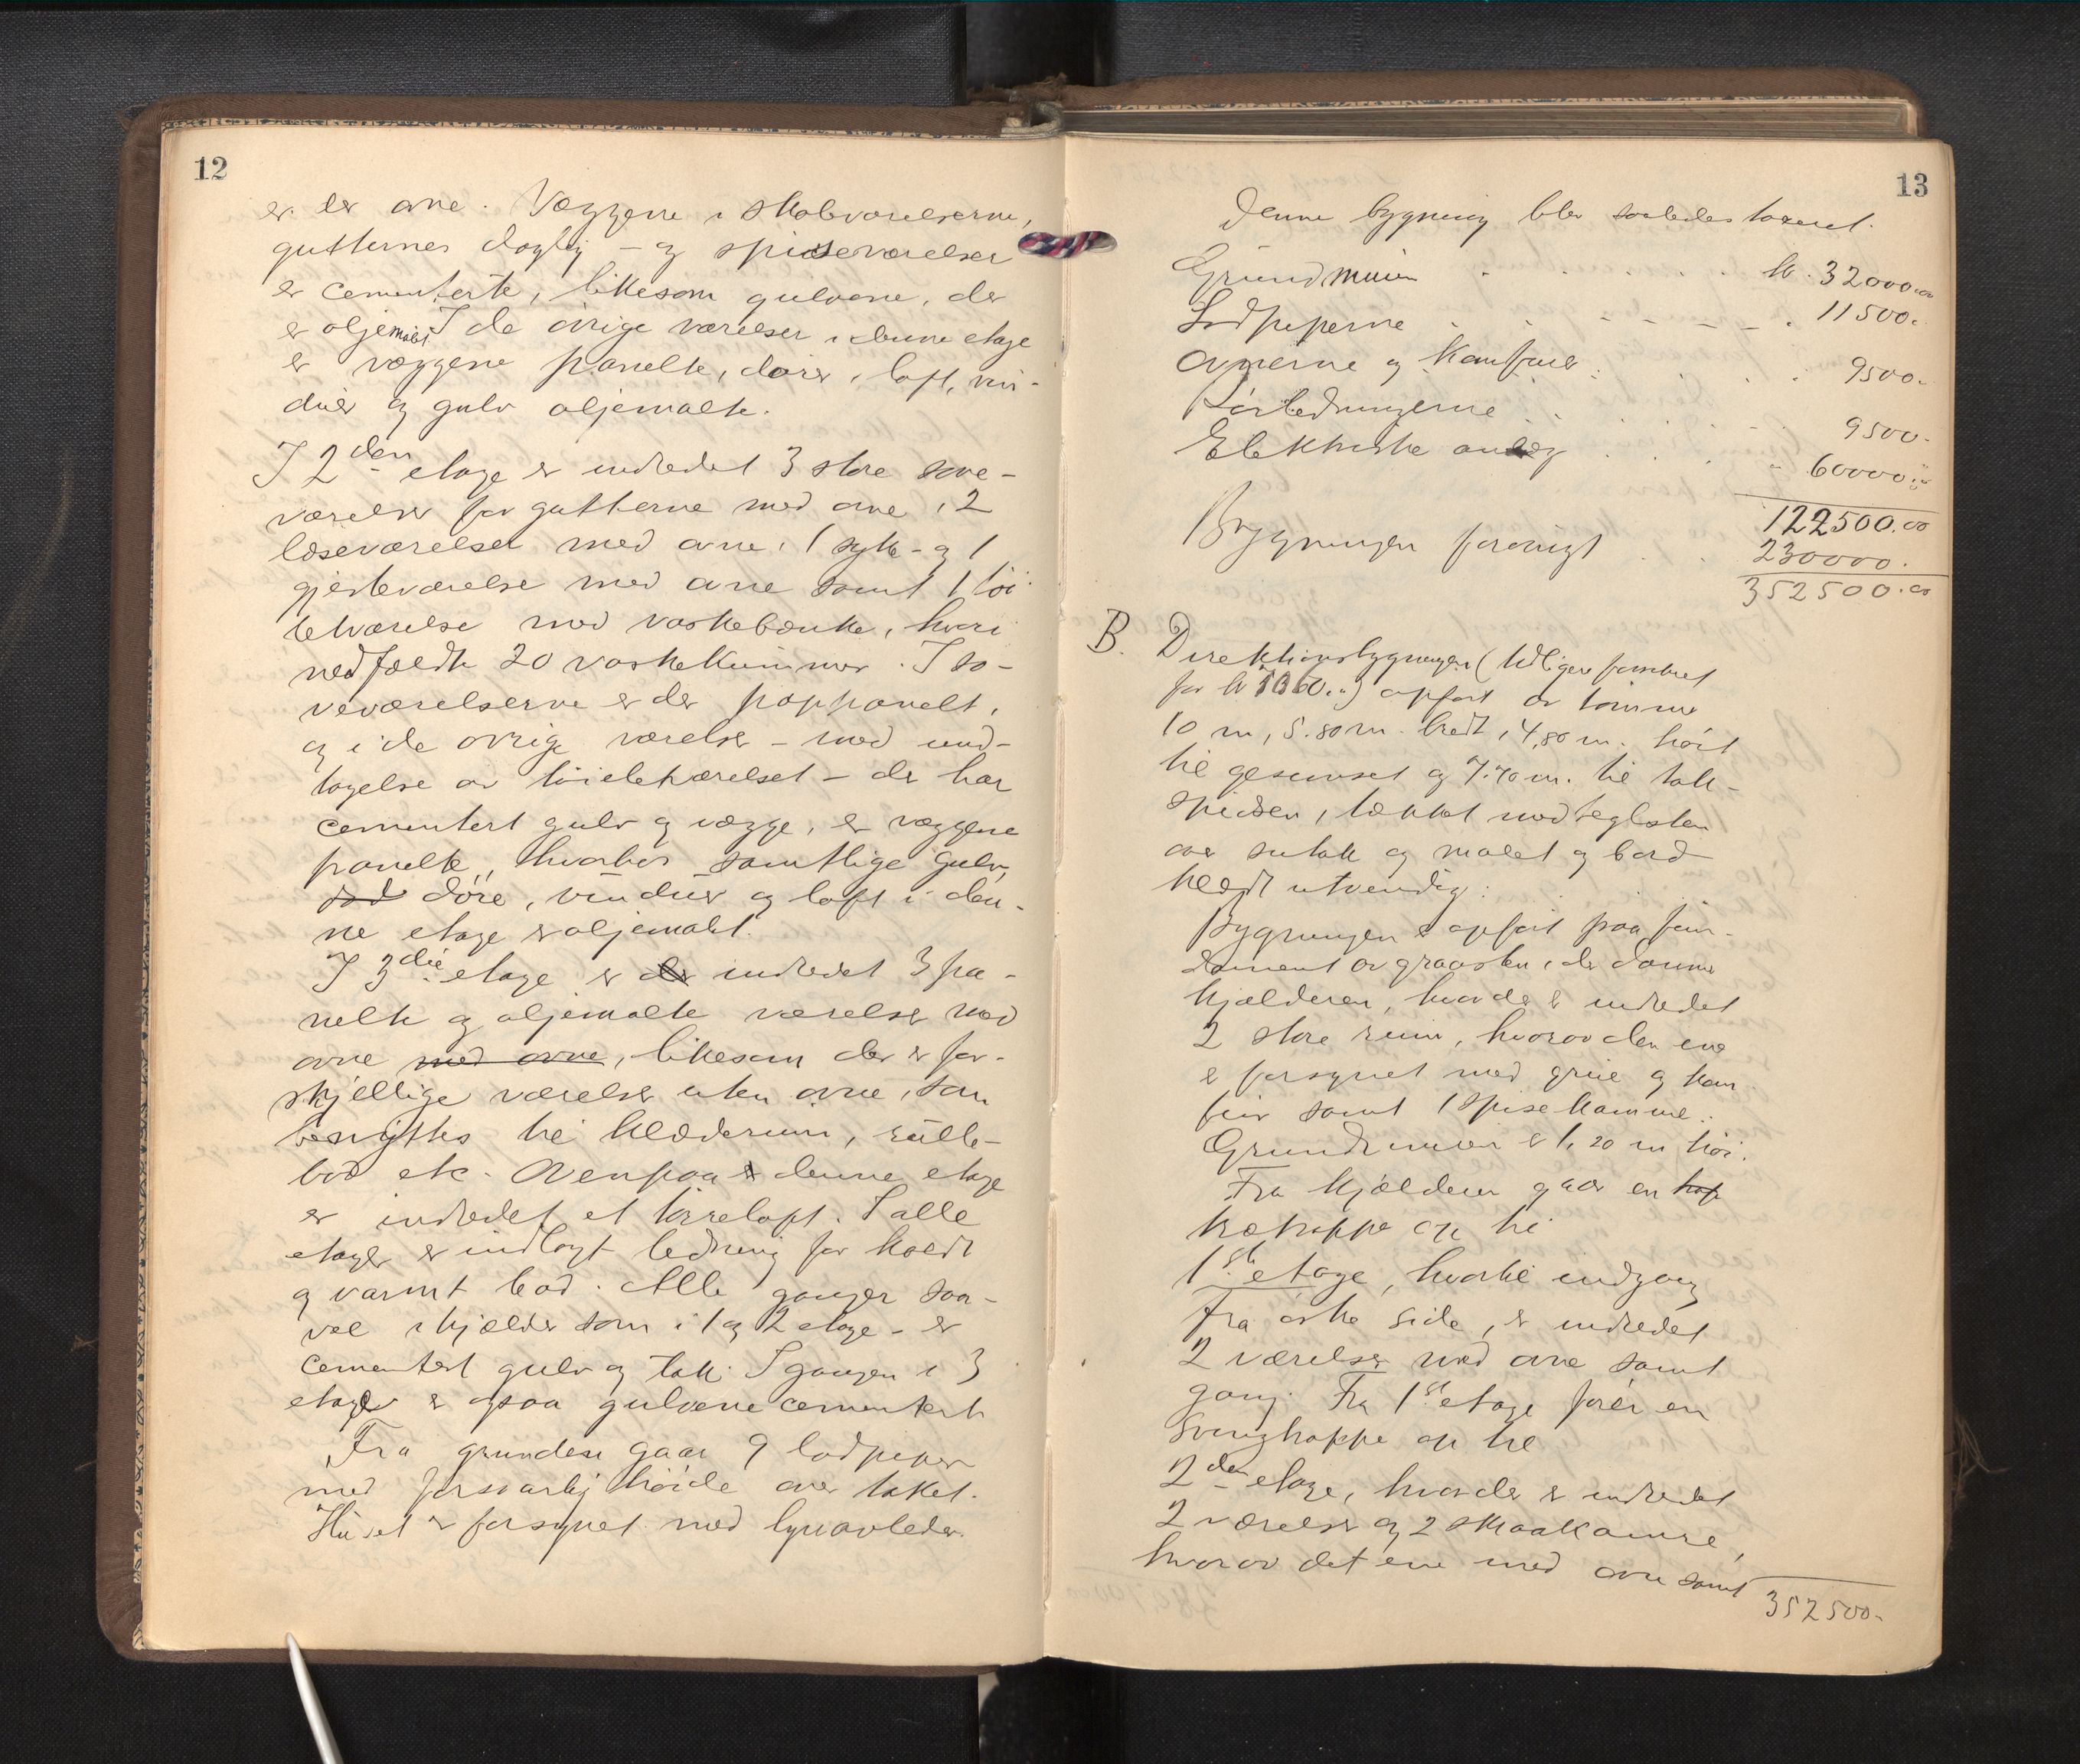 12
er der ovne. Væggene i skoleværelserne,
gutternes daglig - og spiseværelser
er cementerte, likesom gulvene, der
er oljemalt I de øvrige værelser i denne etage
er væggene panelte, dører, loft, vin-
duer og gulv oljemalte.
I 2den etage er indredet 3 store sove-
værelser for gutterne med ovne, 2
læseværelser med ovne, 1 syke- og 1
gjesteværelse med ovne samt 1 toi-
letværelse med vaskebænke, hvori
nedfældte 20 vaskekummer. I so-
veværelserne er der pappanelt,
og i de øvrige værelser - med und-
tagelse av toiletværelset - der har
cementert gulv og vægge, er væggene
panelte, hvorhos samtlige gulv,
døre, vinduer og loft i den-
ne etage er oljemalt.
I 3die etage er der indredet 3 pa-
nelte og oljemalte værelser med
ovne med ovne, likesom der er for-
skjellige værelser uten ovne, som
benyttes til klæderum, rulle-
bod etc. Ovenpaa denne etage
er indredet et tørreloft. I alle
etager er indlagt ledning for koldt
og varmt bad. Alle ganger saa-
vel i kjelder som i 1 og 2 etage - er
cementert gulv og tak. I gangen i 3
etage er ogsaa gulvene cementert
Fra grunden gaar 9 lodpiper
med forsvarlig høide over taket.
Huset er forsynet med lynavleder.
13
Denne bygning blev saaledes taxeret.
Grundmuren kr. 32000.00
Lodpiperne 11500.
Ovnerne og Komfurer 9500.
Rørledningerne 9500.
Elektriske anlæg " 60000.00
122500.00
Bygningen forøvrigt 230000.
352500.00
B. Direktionsbygningen (tidligere forsikret
for kr ) opført av tømmer
10 m, 5.80 m. bredt, 4,80 m. høit
til gesimset og 7.70 m. til tak-
spidsen, tækket med teglsten
over sutak og malet og bord-
klædt utvendig.
Bygningen er opført paa fun-
dament av graasten, der danner
kjælderen, hvor der er indredet
2 store rum, hvorav den ene
er forsynet med grue og kom-
fur samt 1 spisekammer.
Grundmuren er 1,20 m høi.
Fra kjælderen gaar en
trætrappe op til
1ste etage, hvortil indgang
fra østre side, er indredet
2 værelser med ovne samt
gang. Fra 1ste etage fører en
svingtrappe op til
2den etage, hvor der er indredet
2 værelser og 2 smaakamre,
hvorav det ene med ovn samt
352500.-